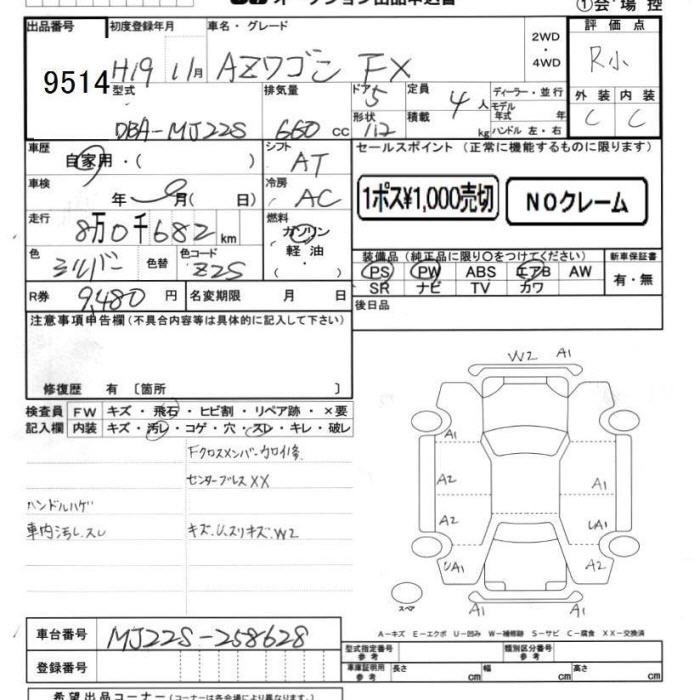 ①会場控
出品番号 初度登録年月 車名・グレード 評価点
2WD
・
4WD
9514 H19 11月 AZワゴン FX R小
型式 排気量 ドア 5 定員 4人 ディーラー・並行
モデル年式 年式
外装 内装
DBA-MJ22S 660cc 形状 積載 kg ハンドル 左・右 C C
車歴 シフト セールスポイント (正常に機能するものに限ります)
自家用・( ) AT
車検 冷房 1ポス¥1,000売切 NOクレーム
年 月( 日) AC
走行 燃料
8万0千682km ガソリン
軽油
( ・ )
色 シルバー 色替 色コード Z2S
装備品(純正品に限り○をつけてください) 新車保証書
PS PW ABS エアB AW 有・無
SR ナビ TV カワ
R券 9,480円 名変期限 月 日 後日品
注意事項申告欄(不具合内容等は具体的に記入して下さい)
修復歴 有 〔箇所 〕
検査員 FW キズ・飛石・ヒビ割・リペア跡・×要
記入欄 内装 キズ・汚レ・コゲ・穴・スレ・キレ・破レ
W2 A1
Fクロスメンバーカロイ修
センターブレスXX
ハンドルハゲ
車内汚レ、スレ キズ、U、スリキズ、W2
A1
A2 A1
A2 UA1
UA1 A1
スペア A1 A1
A-キズ E-エクボ U-凹み W-補修跡 S-サビ C-腐食 XX-交換済
車台番号 MJ22S-258628
型式指定番号 参考 類別区分番号 参考
登録番号 車庫証明用 参考 長さ cm 幅 cm 高さ cm
希望出品コーナー(コーナーは各会場により異なります。)